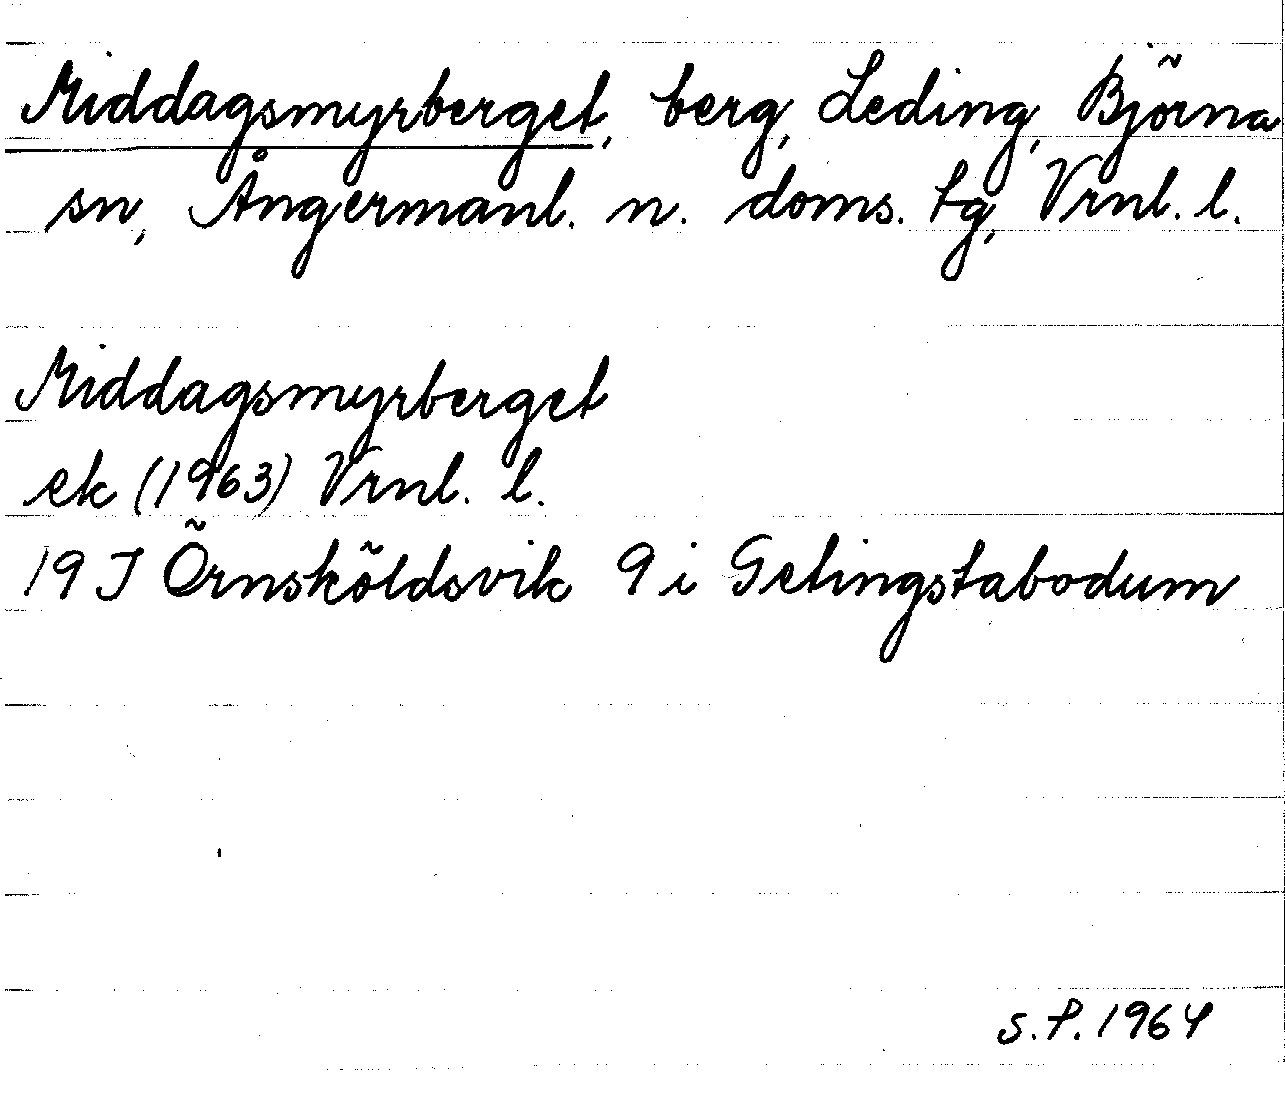 Middagsmyrberget, berg, Leding, Björna
sn, Ångermanl. n. doms. tg, Vrnl. l.
Middagsmyrberget
ek (1963) Vrnl. l.
19 J Örnsköldsvik 9 i Gelingstabodum
S.P. 1964